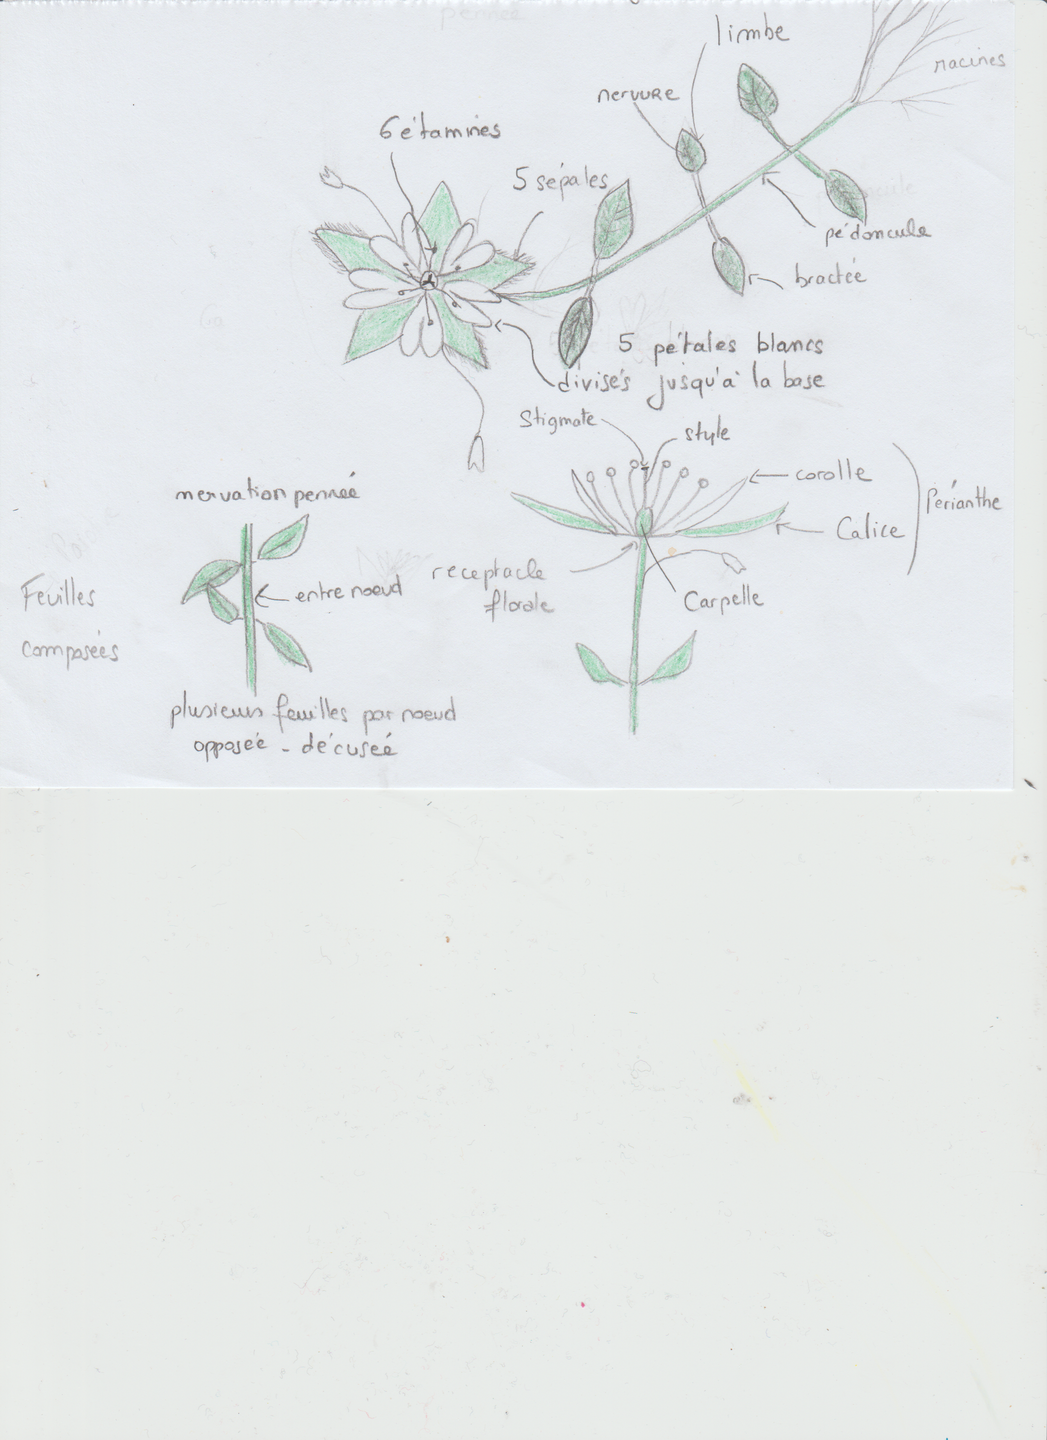 limbe
racines
nervure
6 étamines
5 sépales
pédoncule
bractée
5 pétales blancs
divisés jusqu'à la base
Stigmate
style
corolle
Périanthe
nervation penneé
Calice
receptacle
florale
entre noeud
Feuilles
composées
Carpelle
plusieurs feuilles par noeud
opposée - décuseé